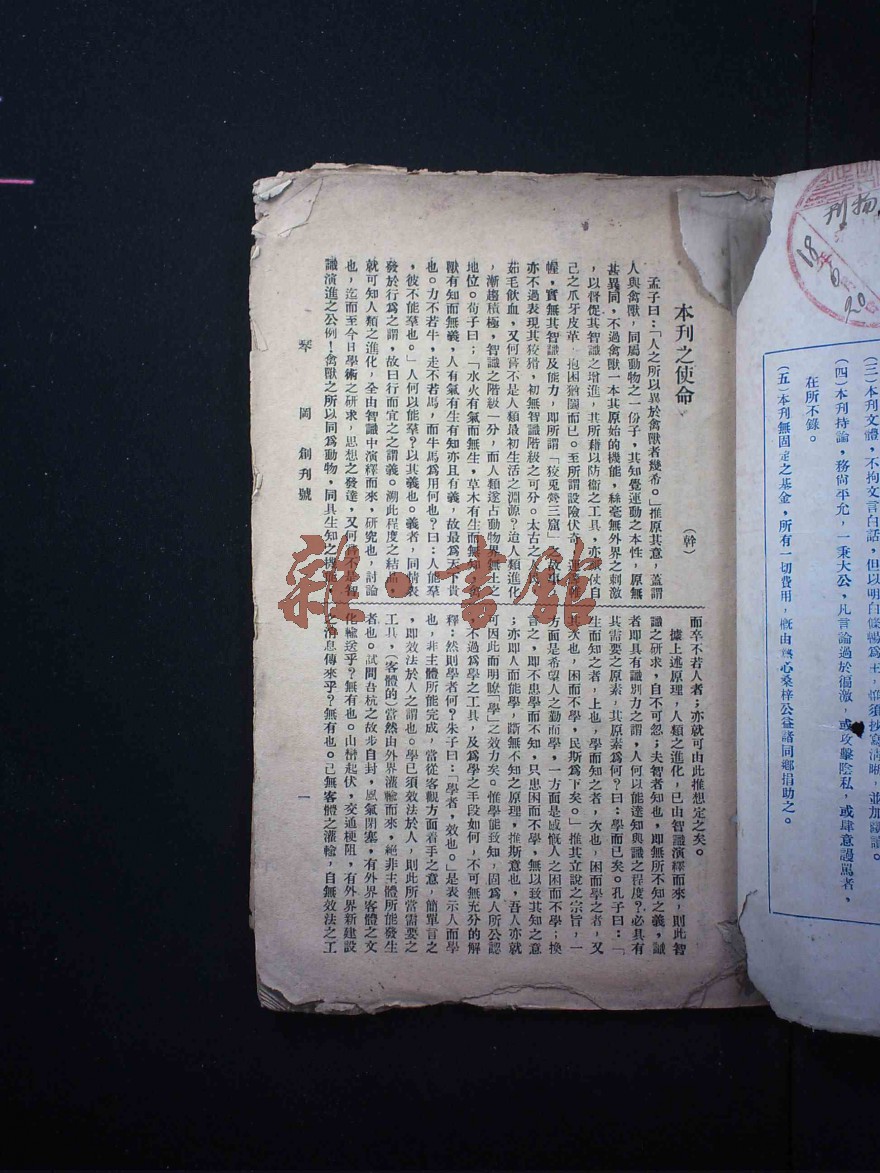 (三)本刊文體，不拘文言白話，但以明白條暢爲主，惟須抄寫清晰，並加識讀。
(四)本刊持論，務尙平允，一秉大公，凡言論過於偏激，或攻擊陰私，或肆意謾駡者，
在所不錄。
(五)本刊無固定之基金，所有一切費用，概由熱心桑梓公益諸同鄕捐助之。
刊物
18年6月20
本刊之使命
(幹)
孟子曰：「人之所以異於禽獸者幾希。」推原其意，蓋謂
人與禽獸，同屬動物之一份子，其知覺運動之本性，原無
甚異同，不過禽獸一本其原始的機能，絲毫無外界之刺激
，以督促其智識之增進，其所藉以防衛之工具，亦祇仗自
己之爪牙皮革，抱困猶鬪而已。至所謂設險伏奇，運籌帷
幄，實無其智識及能力，即所謂「狡兎營三窟」之故事，
亦不過表現其狡猾，初無智識階級之可分。太古之人民，
茹毛飲血，又何嘗不是人類最初生活之淵源？迨人類進化
，漸趨積極，智識之階級一分，而人類遂占動物界無上之
地位。荀子曰；「水火有氣而無生，草木有生而無知，禽
獸有知而無義，人有氣有生有知亦且有義，故最爲天下貴
也。力不若牛，走不若馬，而牛馬爲用何也？曰：人能羣
，彼不能羣也。」人何以能羣？以其義也。義者，同情表
發於行爲之謂，故曰行而宜之之謂義。溯此程度之結晶，
就可知人類之進化，全由智識中演釋而來，研究也，討論
也，迄而至今日學術之研求，思想之發達，又何嘗不是智
識演進之公例！禽獸之所以同爲動物，同具生知之機能，
而卒不若人者；亦就可由此推想定之矣。
據上述原理，人類之進化，已由智識演釋而來，則此智
識之研求，自不可忽；夫智者知也，即無所不知之義，識
者即具有識別力之謂，人何以能達知與識之程度？必具有
其需要之原素，其原素爲何？曰：學而已矣。孔子曰：「
生而知之者，上也，學而知之者，次也，困而學之者，又
其次也，困而不學，民斯爲下矣。」推其立說之宗旨，一
方面是希望人之勤而學，一方面是感慨人之困而不學；換
言之，即不患學而不知，只患困而不學，無以致其知之意
；亦即人而能學，斷無不知之原理，推斯意也，吾人亦就
可因此而明瞭「學」之效力矣。惟學能致知，固爲人所公認
，不過爲學之工具，及爲學之手段如何，不可無充分的解
釋：然則學者何？朱子曰：「學者，效也。」是表示人而學
也，非主體所能完成，當從客觀方面着手之意，簡單言之
，即效法於人之謂也。學已須效法於人，則此所當需要之
工具，(客體的)當然由外界灌輸而來，絕非主體所能發生
者也。試問吾杭之故步自封，風氣閉塞，有外界客體之文
化輸送乎？無有也。山巒起伏，交通梗阻，有外界新建設
之消息傳來乎？無有也。已無客體之灌輸，自無效法之工
琴岡 創刊號
一
雜·書館